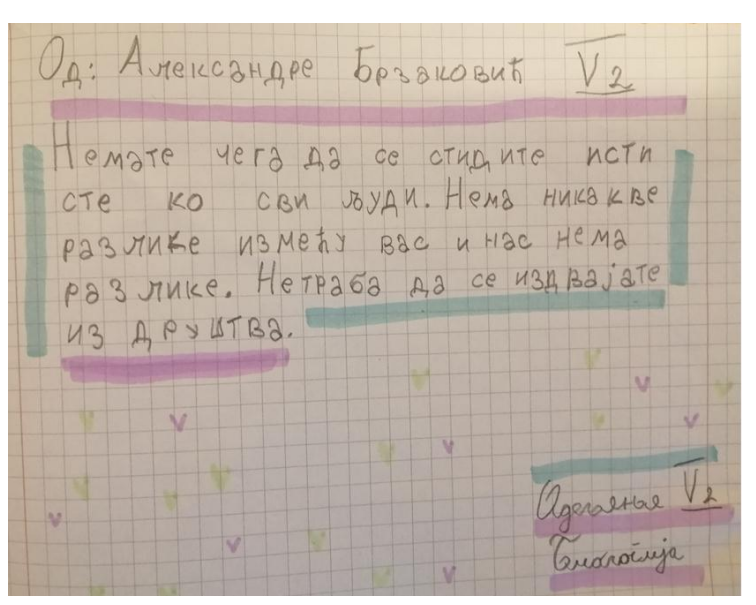 Од: Александре Брзаковић V2
Немате чега да се стидите исти
сте ко сви људи. Нема никакве
разлике између вас и нас нема
разлике. Нетраба да се издвајате
из друштва.
Одељење V2
Биологија